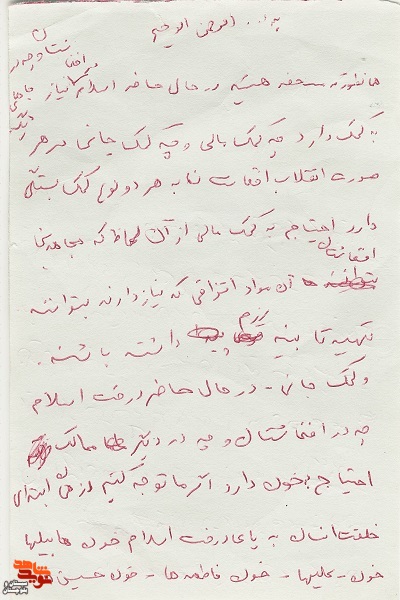 به ... الرحمن الرحیم
همانطور که متوجه هستید در حال حاضر اسلام نیاز
چه در افغانستان و
جاهای دیگر
به کمک دارد چه کمک مالی و چه کمک جانی در هر
صورت انقلاب افغانستان به هر دو نوع کمک بستگی
دارد احتیاج به کمک مالی از آن لحاظ که مجاهدین
افغانستان
آن مواد انتزاقی که نیاز دارند بتوانند
تهیه تا بینه گرم داشته باشند.
و کمک جانی - در حال حاضر درخت اسلام
چه در افغانستان و چه در دیگر ممالک
احتیاج بخون دارد اگر ما توجه کنیم از همان ابتدای
خلقت انسان به پای درخت اسلام خون هابیلها
خون - علیها - خون فاطمه ها - خون حسین ها
شاهد
نوید
سیستان و بلوچستان